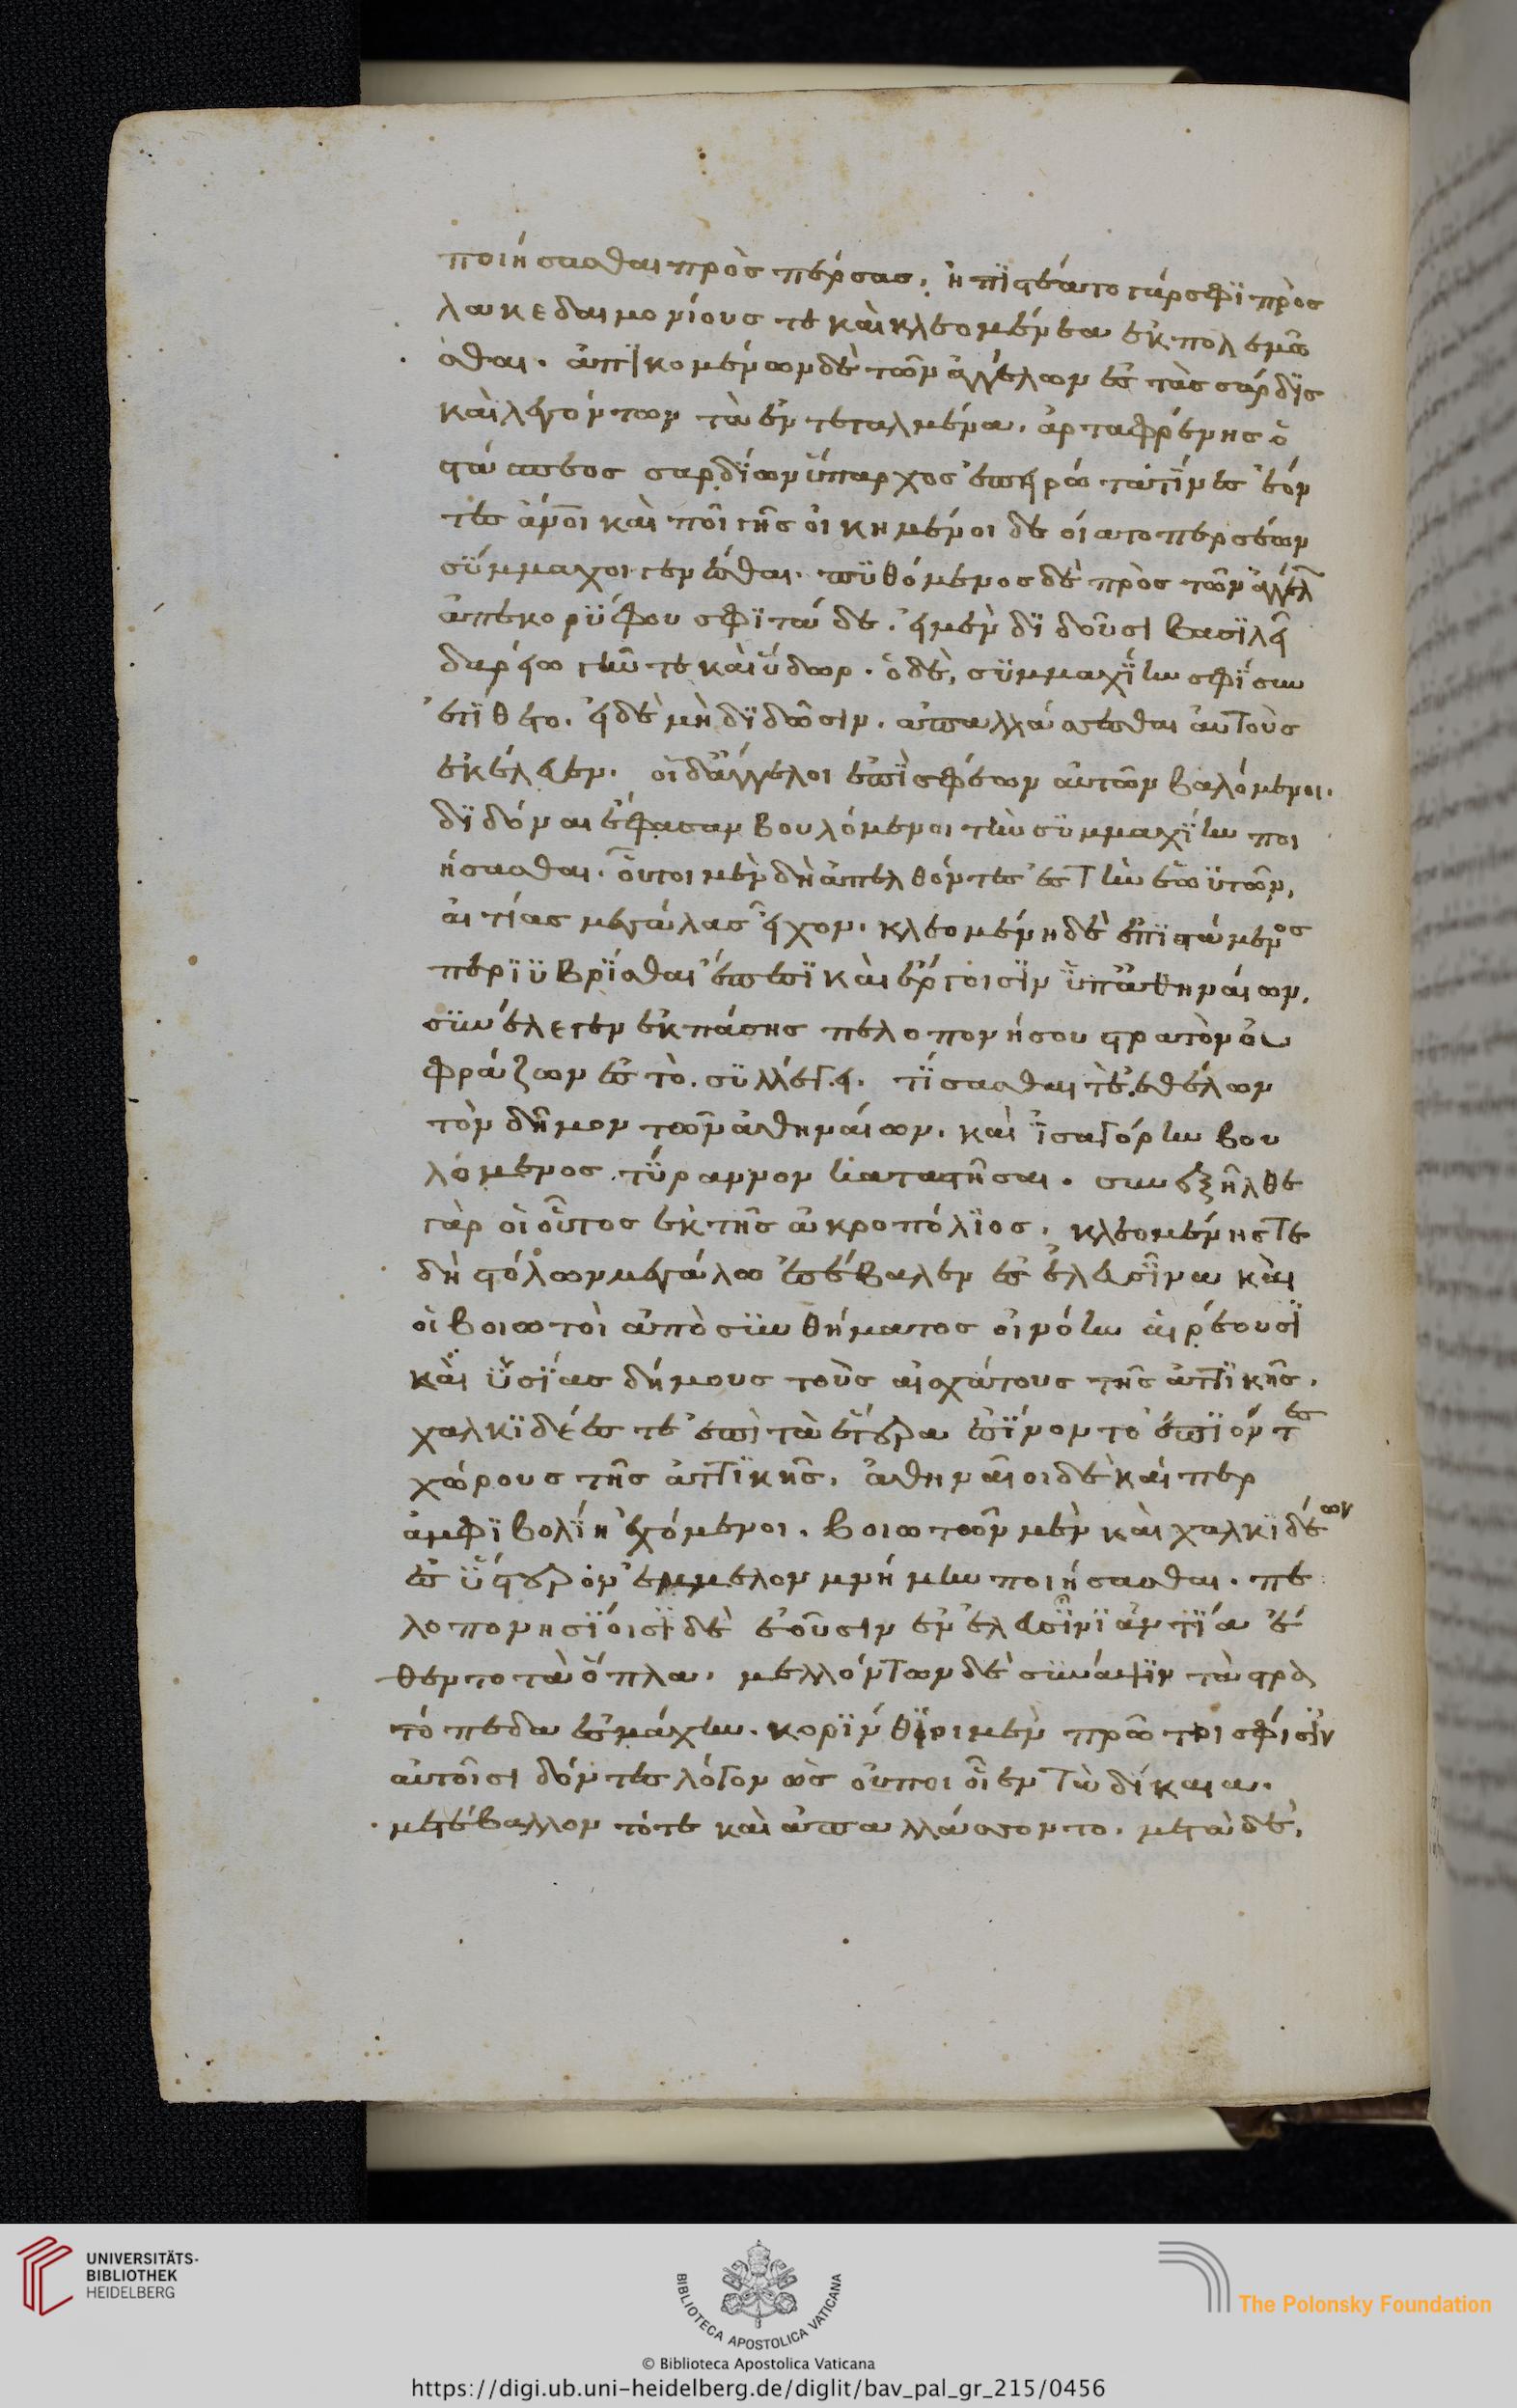 ποιήσασθαι πρὸς πέρσας. ἠπϊστέατο γάρ σφϊ πρὸς
λακεδαιμονίους τε καὶ κλεομένεα ἐκπολεμῶ
σθαι. ἀπϊκομένων δὲ τῶν ἀγγέλων ἐς τὰς σάρδϊς
καὶ λεγόντων τὰ ἐντεταλμένα. ἀρταφρένης ὁ
ὑστάσπεος σαρδΐων ὕπαρχος ἐπειρώτα τΐνες ἐόν
τες ἄν̅οι καὶ ποῖ γῆς οἰκημένοι δεοίατο περσέων
σύμμαχοι γενέσθαι. πϋθόμενος δὲ πρὸς τῶν ἀγγέλ
ἀπεκορΰφου σφϊ τάδε. εἰ μὲν δϊδοῦσι βασϊλεῖ
δαρείω γῆν τε καὶ ὕδωρ. ὁ δὲ, σϋμμαχΐην σφΐ συν
ετΐθετο. εἰ δὲ μὴ δϊδῶσιν. ἀπαλλάσσεσθαι αὐτοὺς
ἐκέλευεν. οἱ δ' ἄγγελοι ἐπὶ σφέων αὐτῶν βαλόμενοι.
δϊδόναι ἔφασαν βουλόμενοι τὴν σϋμμαχΐην ποι
ήσασθαι. οὗτοι μὲν δὴ ἀπελθόντες ἐς τὴν ἑωϋτῶν,
αἰτίας μεγάλας εἶχον. κλεομένη δὲ ἐπϊστάμενος
περϊϋβρΐσθαι ἔπεσϊ καὶ ἔργοισϊν ὑπ' ἀθηναίων.
σϋνέλεγεν ἐκ πάσης πελοπονήσου στρατὸν οὐ
φράζων ἐς τὸ συλλέγει. τΐσασθαι τὲ ἐθέλων
τὸν δῆμον τῶν ἀθηναίων. καὶ ἰσαγόρην βου
λόμενος τΰραννον καταστῆσαι. συνεξῆλθε
γὰρ οἱ οὗτος ἐκ τῆς ἀκροπόλϊος. κλεομένης τε
δὴ στόλων μεγάλω ἐσέβαλεν ἐς ἐλευσῖνα καὶ
οἱ βοιωτοὶ ἀπὸ σϋνθήματος οἰνόην αἱρέουσϊ
καὶ ὑσϊὰς δήμους τοὺς αἰσχάτους τῆς ἀττϊκῆς.
χαλκϊδέες τε ἐπὶ τὰ ἕτερα ἐσΐνοντο ἐπϊόντες
χώρους τῆς ἀττϊκῆς. ἀθηναῖοι δὲ καίπερ
ἀμφϊβολΐη ἐχόμενοι. βοιωτῶν μὲν καὶ χαλκϊδέων
ἐς ὕστερον ἔμμελον μνήμην ποιήσασθαι. πε
λοπονησϊοισϊ δὲ ἐοῦσιν ἐν ἐλευσῖνϊ ἀντΐα ἔ
θεντο τὰ ὅπλα. μελλόντων δὲ σϋνάψϊν τὰ στρα
τόπεδα ἐς μάχην. κορΐνθϊοι μὲν πρῶτοι σφίσϊν
αὐτοῖσι δόντες λόγον ὡς οὐ ποιοῖεν τὰ δίκαια.
μετέβαλλον τότε καὶ ἀπαλλάσσοντο. μετὰ δὲ,
UNIVERSITÄTS-
BIBLIOTHEK
HEIDELBERG
BIBLIOTECA APOSTOLICA VATICANA
The Polonsky Foundation
© Biblioteca Apostolica Vaticana
https://digi.ub.uni-heidelberg.de/diglit/bav_pal_gr_215/0456